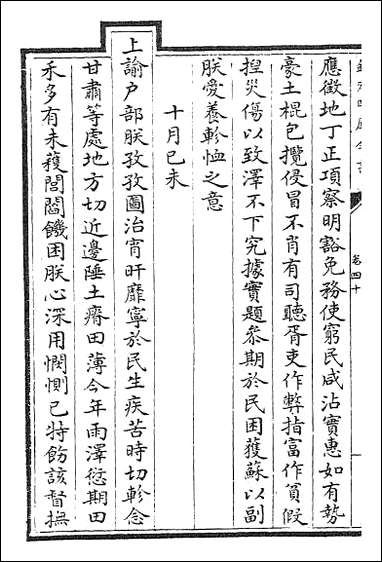 欽定四庫全書
卷四十
應徵地丁正項察明豁免務使窮民咸沾實惠如有勢
豪土棍包攬侵冒不肖有司聽胥吏作弊指富作貧假
揑災傷以致澤不下究據實題叅期於民困獲蘇以副
朕愛養軫恤之意
十月己未
上諭户部朕孜孜圖治宵旰靡寧於民生疾苦時切軫念
甘肅等處地方切近邊陲土瘠田薄今年雨澤愆期田
禾多有未穫閭閻饑困朕心深用憫惻已特飭該督撫